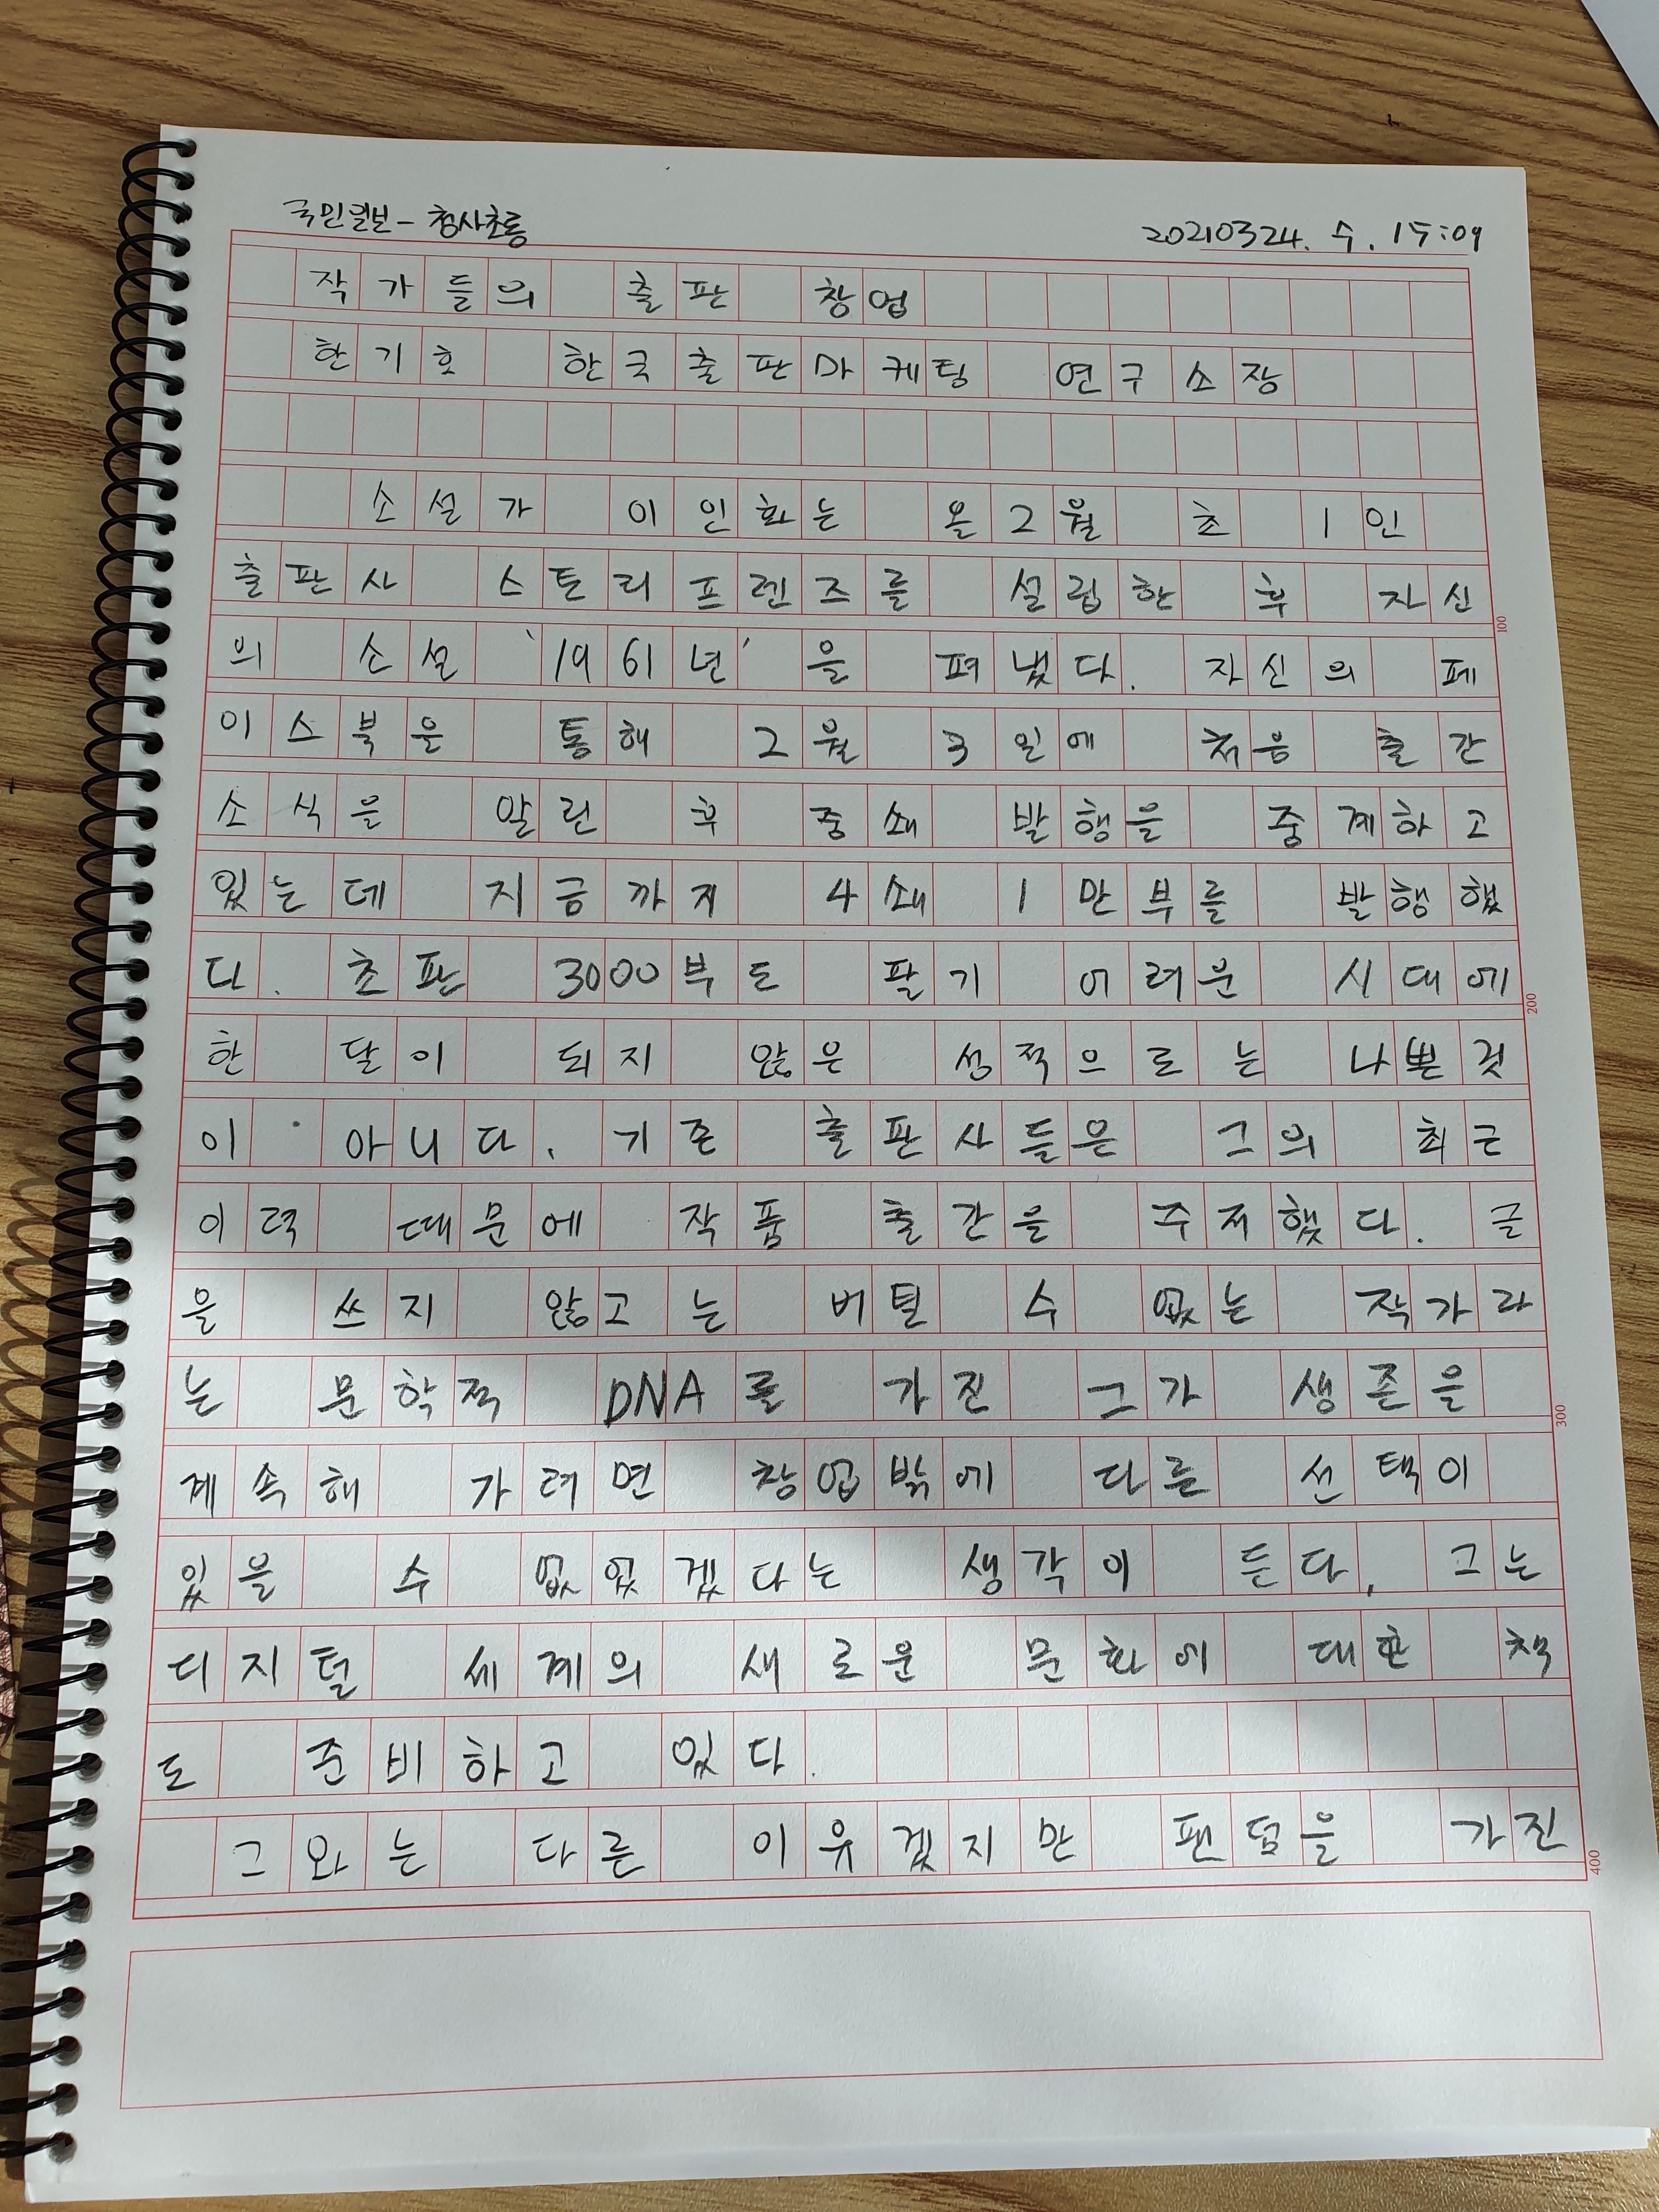 국민일보 - 청사초롱
20210324. 수. 15:09
작가들의 출판 창업
한기호 한국출판마케팅 연구소장
소설가 이인화는 올 2월 초 1인
출판사 스토리프렌즈를 설립한 후 자신
의 소설 '1961년'을 펴냈다. 자신의 페
이스북을 통해 2월 3일에 처음 출간
소식을 알린 후 중쇄 발행을 중계하고
있는데 지금까지 4쇄 1만부를 발행했
다. 초판 3000부도 팔기 어려운 시대에
한 달이 되지 않은 성적으로는 나쁜 것
이 아니다. 기존 출판사들은 그의 최근
이력 때문에 작품 출간을 주저했다. 글
을 쓰지 않고는 버틸 수 없는 작가라
는 문학적 DNA를 가진 그가 생존을
계속해 가려면 창업밖에 다른 선택이
있을 수 없었겠다는 생각이 든다. 그는
디지털 세계의 새로운 문화에 대한 책
도 준비하고 있다.
그와는 다른 이유겠지만 팬덤을 가진
100
200
300
400